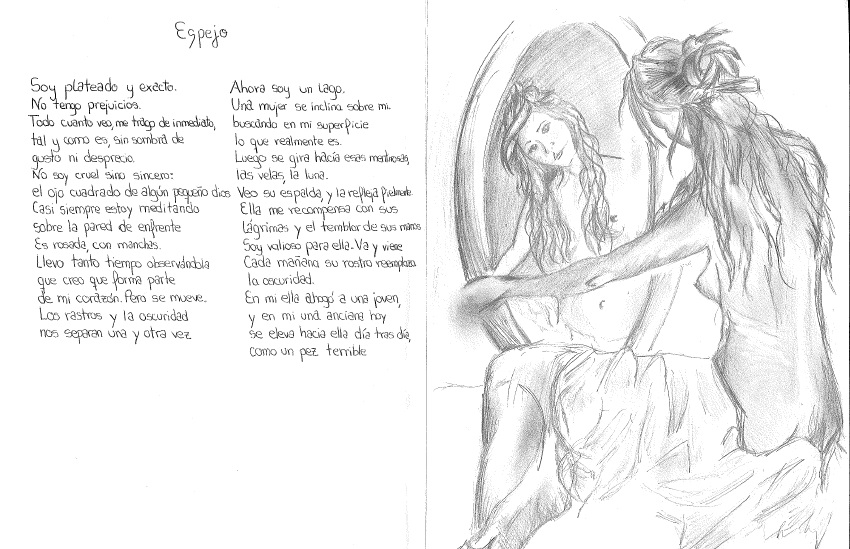 Espejo
Soy plateado y exacto.
No tengo prejuicios.
Todo cuanto veo, me trago de inmediato,
tal y como es, sin sombra de
gusto ni desprecio.
No soy cruel sino sincero:
el ojo cuadrado de algún pequeño dios
Casi siempre estoy meditando
sobre la pared de enfrente
Es rosada, con manchas.
Llevo tanto tiempo observándola
que creo que forma parte
de mi corazón. Pero se mueve.
Los rostros y la oscuridad
nos separan una y otra vez
Ahora soy un lago.
Una mujer se inclina sobre mi
buscando en mi superficie
lo que realmente es.
Luego se gira hacia esas mentirosas,
las velas, la luna.
Veo su espalda, y la reflejo fielmente.
Ella me recompensa con sus
lágrimas y el temblor de sus manos
Soy valioso para ella. Va y viene
Cada mañana su rostro reemplaza
la oscuridad.
En mi ella ahogó a una joven,
y en mi una anciana hoy
se eleva hacia ella día tras día,
como un pez terrible